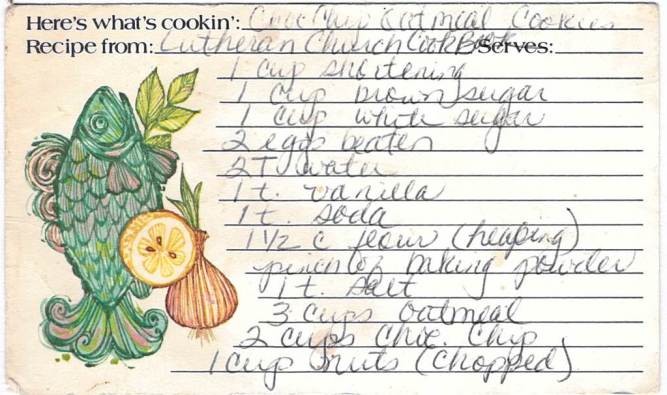 Here's what's cookin': Choc Chip Oatmeal Cookies
Recipe from: Lutheran Church Cook Book Serves:
1 cup shortening
1 cup brown sugar
1 cup white sugar
2 eggs beaten
2 T. water
1 t. vanilla
1 t. soda
1 1/2 c flour (heaping)
pinch of baking powder
1 t. salt
3 cups oatmeal
2 cups choc. chip
1 cup nuts (chopped)